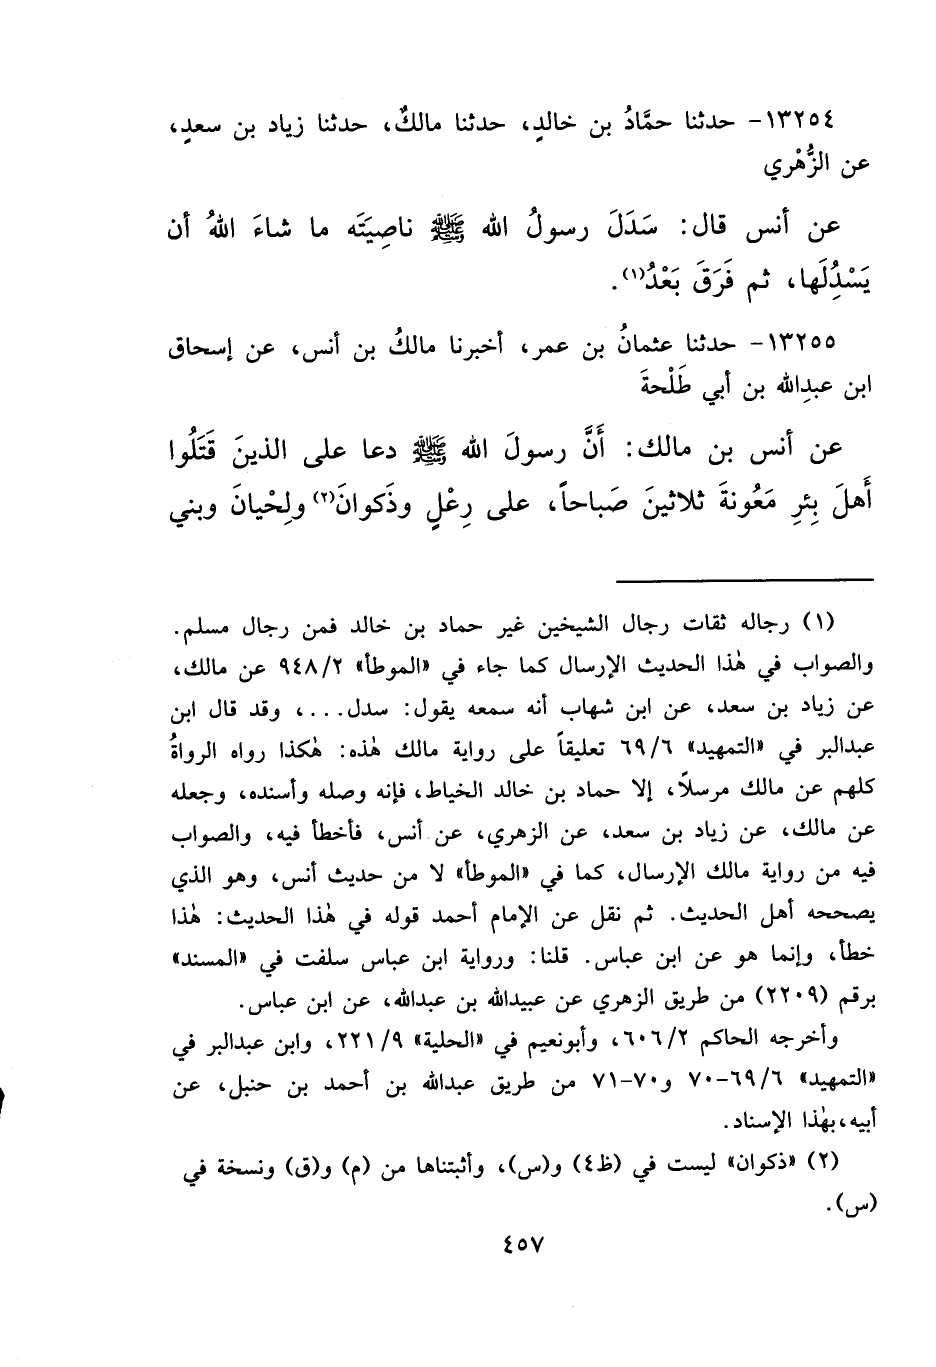 ١٣٢٥٤- حدثنا حمَّادُ بن خالدٍ، حدثنا مالكٌ، حدثنا زياد بن سعدٍ،
عن الزُّهْري
عن أنس قال: سَدَلَ رسولُ الله ﷺ ناصِيَتَه ما شاءَ اللهُ أن
يَسْدِلَها، ثم فَرَقَ بَعْدُ(١).
١٣٢٥٥- حدثنا عثمانُ بن عمر، أخبرنا مالكُ بن أنس، عن إسحاق
ابن عبدِالله بن أبي طَلْحةَ
عن أنس بن مالك: أَنَّ رسولَ الله ﷺ دعا على الذينَ قَتَلُوا
أَهلَ بِئرِ مَعُونةَ ثلاثينَ صَباحاً، على رِعْلٍ وذَكوانَ(٢) ولِحْيانَ وبني
(١) رجاله ثقات رجال الشيخين غير حماد بن خالد فمن رجال مسلم.
والصواب في هٰذا الحديث الإرسال كما جاء في «الموطأ» ٩٤٨/٢ عن مالك،
عن زياد بن سعد، عن ابن شهاب أنه سمعه يقول: سدل...، وقد قال ابن
عبدالبر في «التمهيد» ٦٩/٦ تعليقاً على رواية مالك هٰذه: هٰكذا رواه الرواةُ
كلهم عن مالك مرسلاً، إلا حماد بن خالد الخياط، فإنه وصله وأسنده، وجعله
عن مالك، عن زياد بن سعد، عن الزهري، عن أنس، فأخطأ فيه، والصواب
فيه من رواية مالك الإرسال، كما في «الموطأ» لا من حديث أنس، وهو الذي
يصححه أهل الحديث. ثم نقل عن الإمام أحمد قوله في هٰذا الحديث: هٰذا
خطأ، وإنما هو عن ابن عباس. قلنا: ورواية ابن عباس سلفت في «المسند»
برقم (٢٢٠٩) من طريق الزهري عن عبيدالله بن عبدالله، عن ابن عباس.
وأخرجه الحاكم ٦٠٦/٢، وأبونعيم في «الحلية» ٢٢١/٩، وابن عبدالبر في
«التمهيد» ٦٩/٦-٧٠ و٧٠-٧١ من طريق عبدالله بن أحمد بن حنبل، عن
أبيه،بهٰذا الإسناد.
(٢) «ذكوان» ليست في (ظ٤) و(س)، وأثبتناها من (م) و(ق) ونسخة في
(س).
٤٥٧